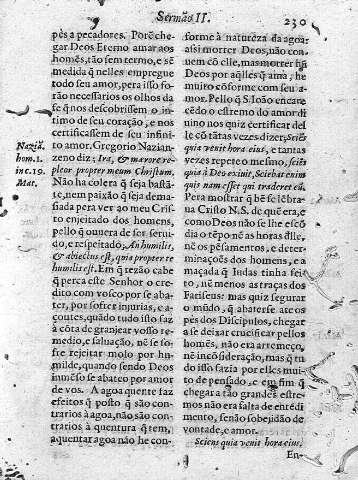 Sermão II.
230
pès a pecadores. Porẽ che-
gar Deos Eterno amar aos
homẽs, tão sem termo, e sẽ
medida q̃ nelles empregue
todo seu amor, pera isso fo-
rão necessarios os olhos da
fe q̃ nos descobrissem o in-
timo de seu coração, e nos
certificassem de seu infini-
to amor. Gregorio Nazian-
zeno diz; Ira, & mærore re-
pleor propter meum Christum.
Não ha colera q̃ seja bastã-
te, nem paixão q̃ seja dema-
siada pera ver ao meu Cristo
enjeitado dos homens,
pello q̃ ouuera de ser serui-
do, e respeitado, An humilis,
& abiectus est, quia propter te
humilis est. Em q̃ rezão cabe
q̃ perca este Senhor o credi-
to com vosco por se aba-
ter, por sofrer injurias, e a-
çoutes, quãdo tudo isso faz
à côta de granjear vosso re-
medio, e saluação, nẽ se so-
fre rejeitar molo por hu-
milde, quando sendo Deos
inmẽso se abateo por amor
de vos. A agoa quente faz
efeitos q̃ posto q̃ são con-
trarios à agoa, não são con-
trarios à quentura q̃ tem,
aquentar agoa não he con-
Naziã.
hom. 1.
in c. 19.
Mat.
forme à naturẽza da agoa:
assi morrer Deos, não con-
uem cõ elle, mas morrer fiz
Deos por aq̃lles q̃ ama; he
muito cõforme com seu a-
mor. Pello q̃ S. Ioão encare
cẽdo o estremo do amor di
uino nos quiz certificar del
le cõ tãtas vezes dizer, Sciẽs
quia venit hora eius, e tantas
vezes repete o mesmo, sciẽs
quia à Deo exiuit, Sciebat enim
quis nam esset qui traderet eũ.
Pera mostrar q̃ bẽ se lẽbra-
ua Cristo N. S. de quẽ era, e
como Deos não se lhe escõ
dia o tẽpo nẽ as horas dlle,
nẽ os pẽsamentos, e deter-
minações dos homens, e a
maçada q̃ Iudas tinha fei-
to, nẽ menos as traças dos
Fariseus: mas quiz segurar
o mũdo, q̃ abaterse ate os
pès dos Discipulos, chegar
a se deixar crucificar pellos
homẽs, não era arremeço,
nẽ incõsideração, mas q̃ tu
do isso fazia por elles mui-
to de pensado, e em fim q̃
chegar a tão grandes estre-
mos não era falta de entẽdi
mento, senão sobejidão de
vontade, e amor.
Sciens quia venit hora eius.
En-